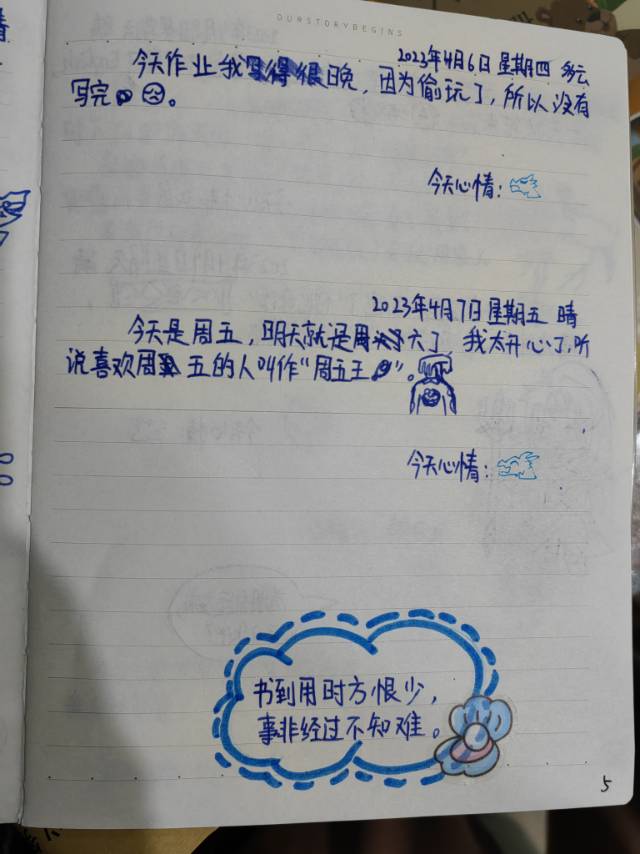 OURSTORYBEGINS
2023年4月6日 星期四 多云
今天作业我写得很晚，因为偷玩了，所以没有
写完。
今天心情：
2023年4月7日 星期五 晴
今天是周五，明天就是周六了，我太开心了，听
说喜欢周五的人叫作“周五王”。
今天心情：
书到用时方恨少，
事非经过不知难。
5